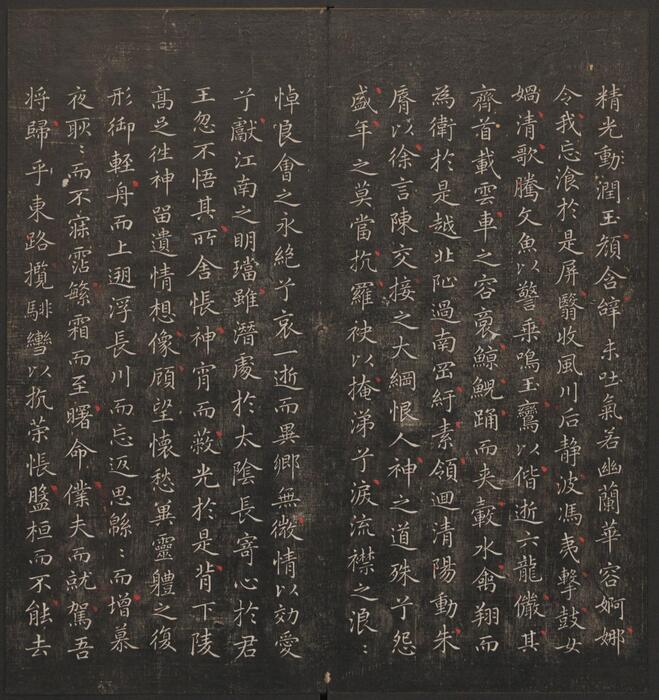 精光動潤玉顏含辝未吐氣若幽蘭華容婀娜
令我忘飡於是屏翳收風川后静波馮夷擊鼓女
媧清歌騰文魚以警乗鳴玉鸞以偕逝六龍儼其
齊首載雲車之容裔鯨鯢踊而夾轂水禽翔而
為衛於是越北沚過南岡紆素領迴清陽動朱
脣以徐言陳交接之大綱恨人神之道殊兮怨
盛年之莫當抗羅袂以掩涕兮淚流襟之浪〻
悼良會之永絕兮哀一逝而異鄉無微情以効愛
兮獻江南之明璫雖潛處於太陰長寄心於君
王忽不悟其所舍悵神宵而蔽光於是背下陵
高足往神留遺情想像顧望懷愁異靈體之復
形御輕舟而上遡浮長川而忘返思緜〻而增慕
夜耿〻而不寐霑繁霜而至曙命僕夫而就駕吾
将歸乎東路攬騑轡以抗策悵盤桓而不能去